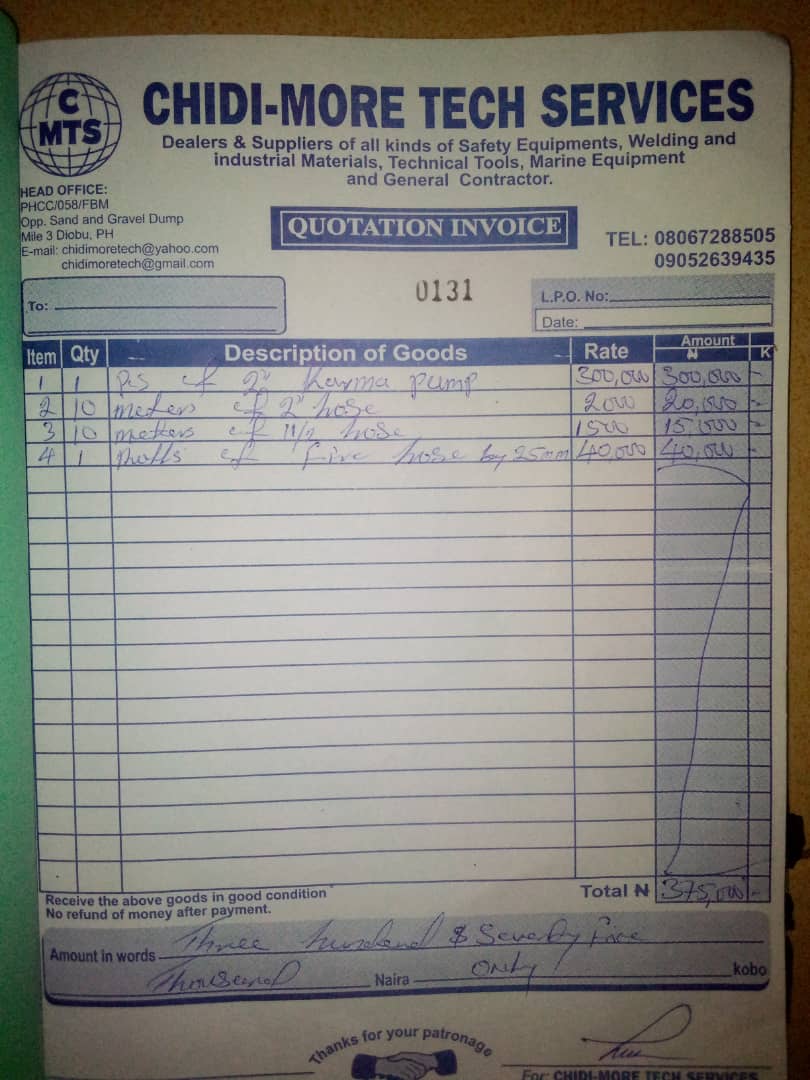 C
MTS
CHIDI-MORE TECH SERVICES
Dealers & Suppliers of all kinds of Safety Equipments, Welding and
industrial Materials, Technical Tools, Marine Equipment
and General Contractor.
HEAD OFFICE:
PHCC/058/FBM
Opp. Sand and Gravel Dump
Mile 3 Diobu, PH
E-mail: chidimoretech@yahoo.com
chidimoretech@gmail.com
QUOTATION INVOICE
TEL: 08067288505
09052639435
To:
0131
L.P.O. No:
Date:
Item Qty Description of Goods Rate Amount ₦ K
1 1 Pcs of 2" Karma pump 300,000 300,000 -
2 10 meters of 2" hose 2000 20,000 -
3 10 meters of 1 1/2 hose 1500 15,000 -
4 1 Rolls of fire hose by 25mm 40,000 40,000 -
Receive the above goods in good condition
No refund of money after payment.
Total ₦ 375,000 -
Amount in words Three hundred & Seventy Five
Thousand Naira Only kobo
Thanks for your patronage
For: CHIDI-MORE TECH SERVICES